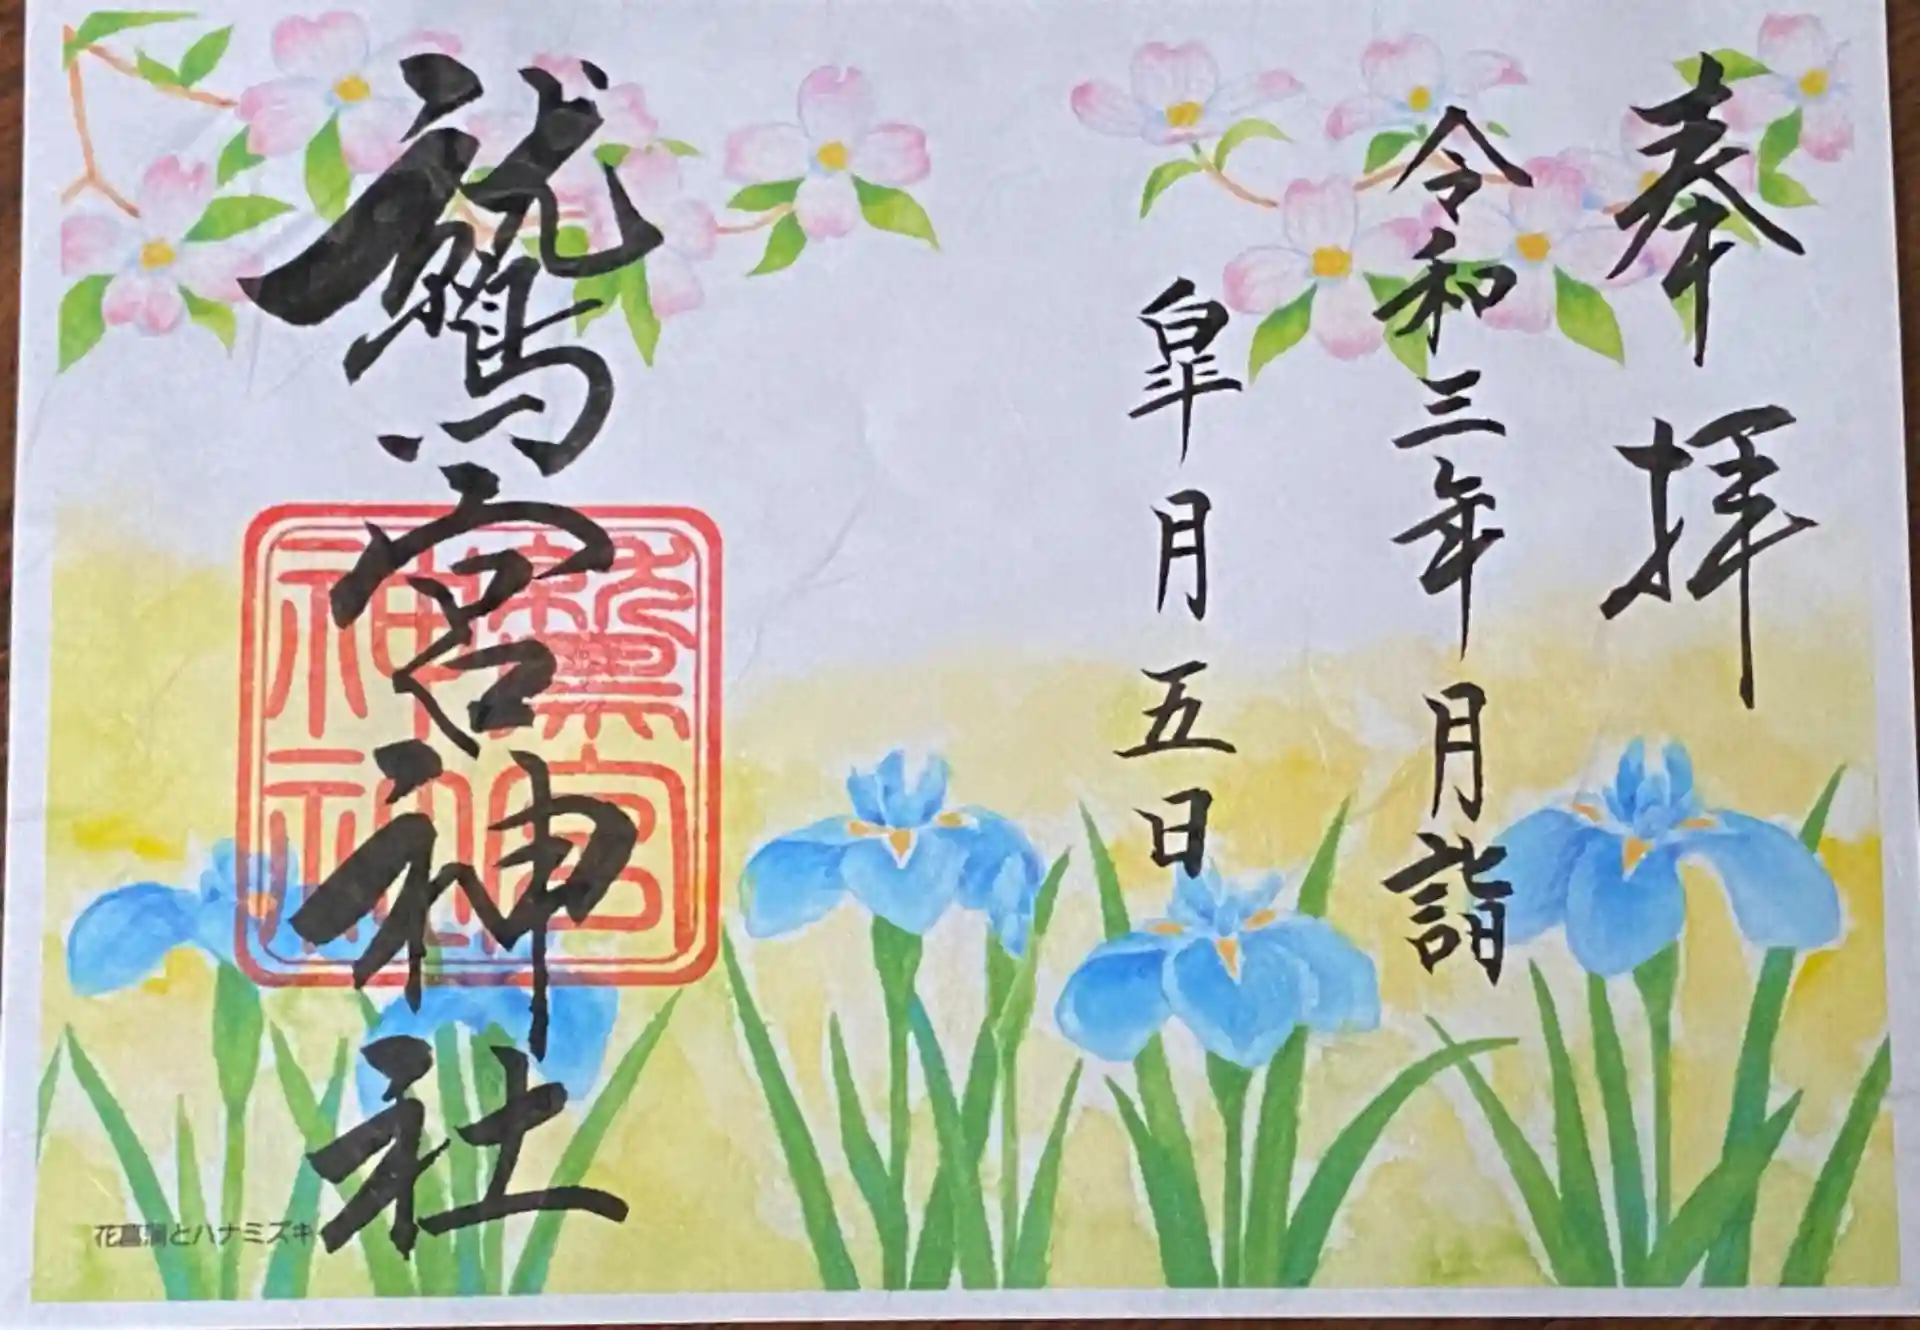 奉拝
令和三年月詣
皐月五日
鷲宮神社
鷲宮
神社
花菖蒲とハナミズキ